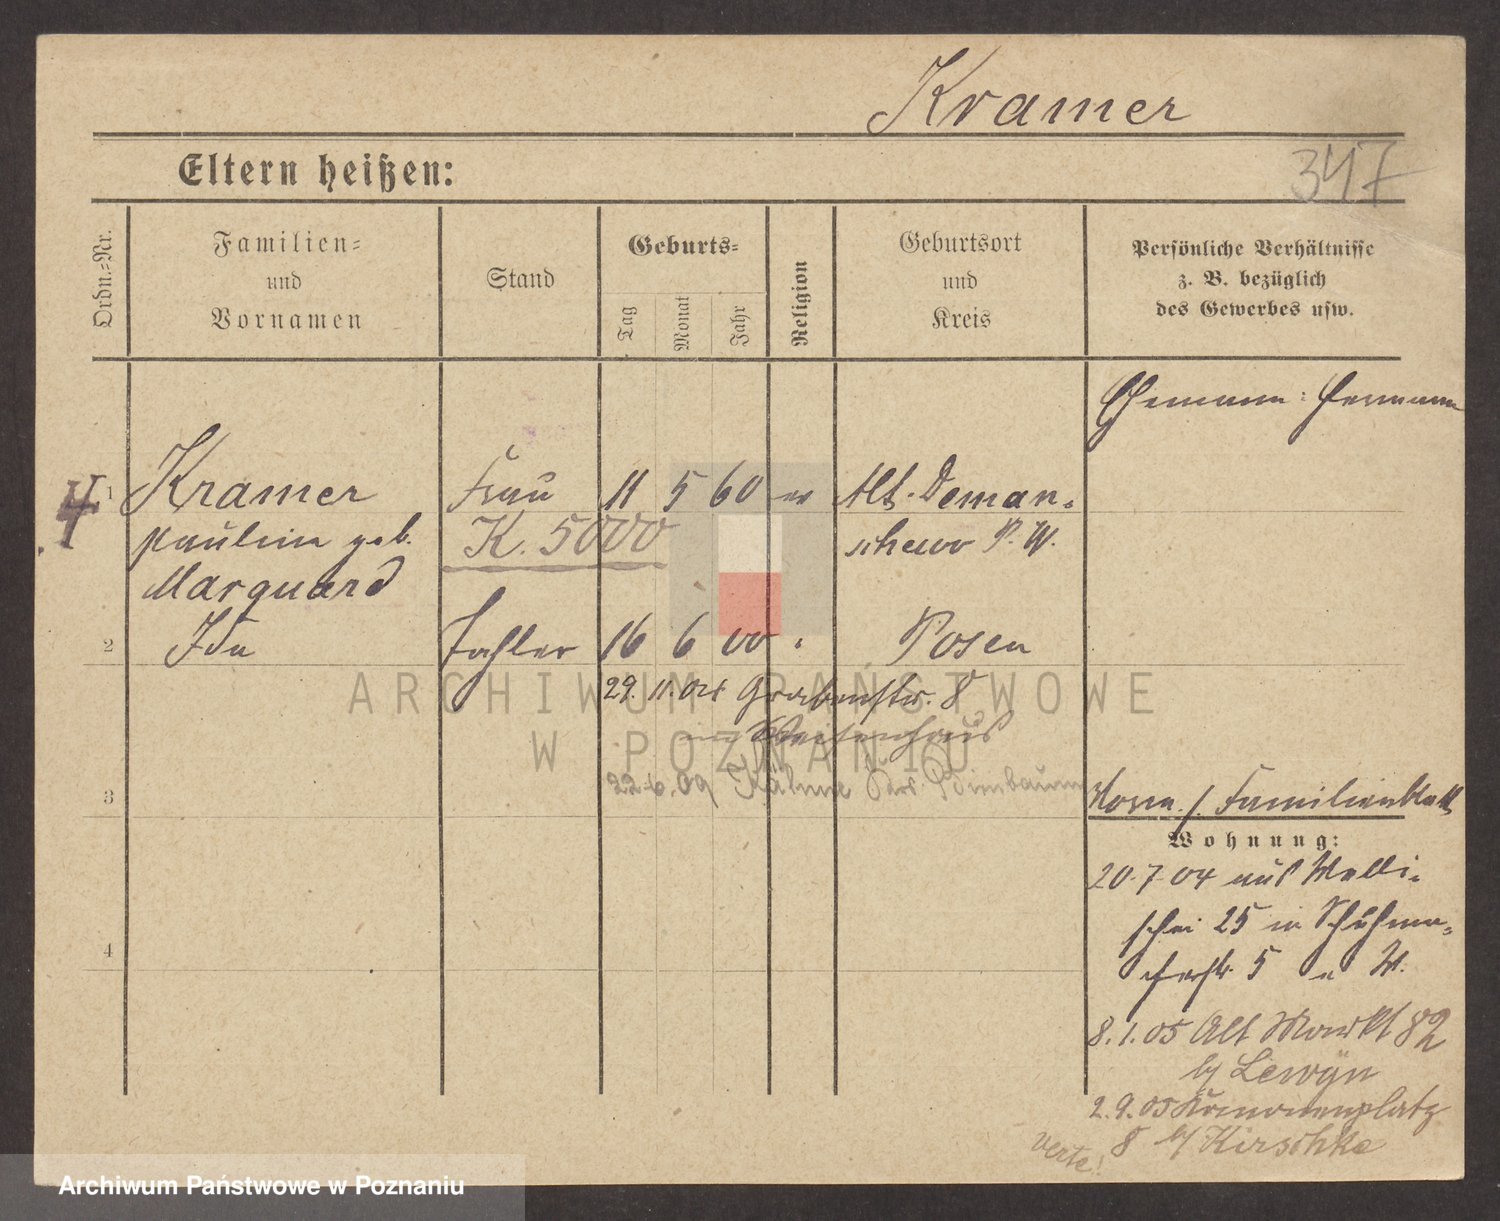 Kramer
347
Eltern heißen:
Ordn.-Nr.
Familien-
und
Vornamen
Stand
Geburts-
Tag
Monat
Jahr
Religion
Geburtsort
und
Kreis
Persönliche Verhältnisse
z. B. bezüglich
des Gewerbes usw.
Ehemann: Hermann
1 Kramer Frau 11 5 60 ev Alt-Deman-
pauline geb. K. 5000 schewo P. W.
Marquard
2 Ida Tochter 16 6 00 " Posen
29. 11. 04 Grabenstr. 8
im Waisenhaus
22.6.09 Kähme Krs. Birnbaum
3
4
Vorn. s. Familienblatt
Wohnung:
20.7.04 aus Walli-
schei 25 in Schuhma-
cherstr 5 W.
8.1.05 Alt Markt 82
by Lewyn
2.9.05 Kanonenplatz
8 by Kirschke
verte!
ARCHIWUM PAŃSTWOWE
W POZNANIU
Archiwum Państwowe w Poznaniu